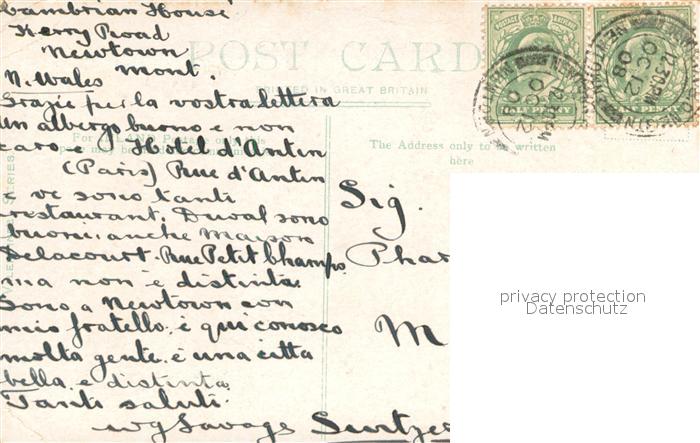 Cambrian House
Kerry Road
Newtown
Mont.
N. Wales
POST CARD
PRINTED IN GREAT BRITAIN
The Address only to be written
here
Grazie per la vostra lettera
un albergo buono e non
caro e l'Hôtel d'Antin
(Paris) Rue d'Antin
e ve sono tanti
restaurant. Duval sono
buoni. anche Maison
Delacourt. Rue Petit Champs.
ma non è distinta.
Sono a Newtown con
mio fratello. e qui conosco
molta gente. è una citta
bella. e distinta.
Tanti saluti.
W G Savage
Sig.
Phar
M
Switzer
POSTAGE
HALF PENNY
NEWTOWN
12.30PM
OC 12
08
privacy protection
Datenschutz